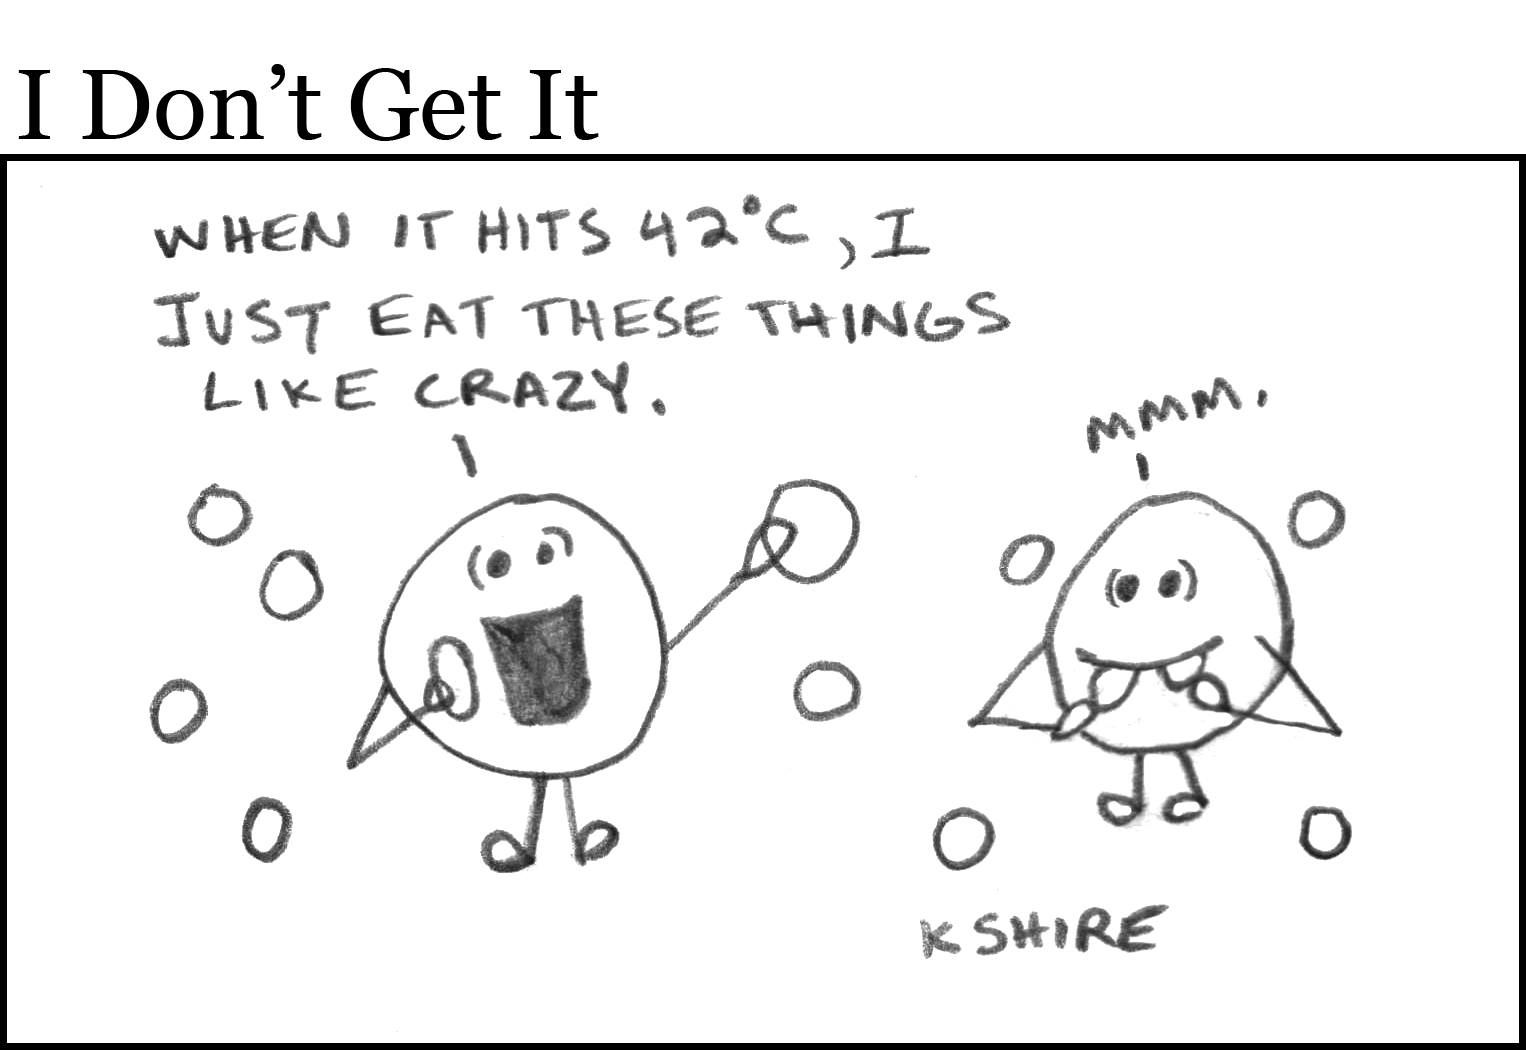 I Don’t Get It
WHEN IT HITS 42°C, I
JUST EAT THESE THINGS
LIKE CRAZY.
MMM.
KSHIRE